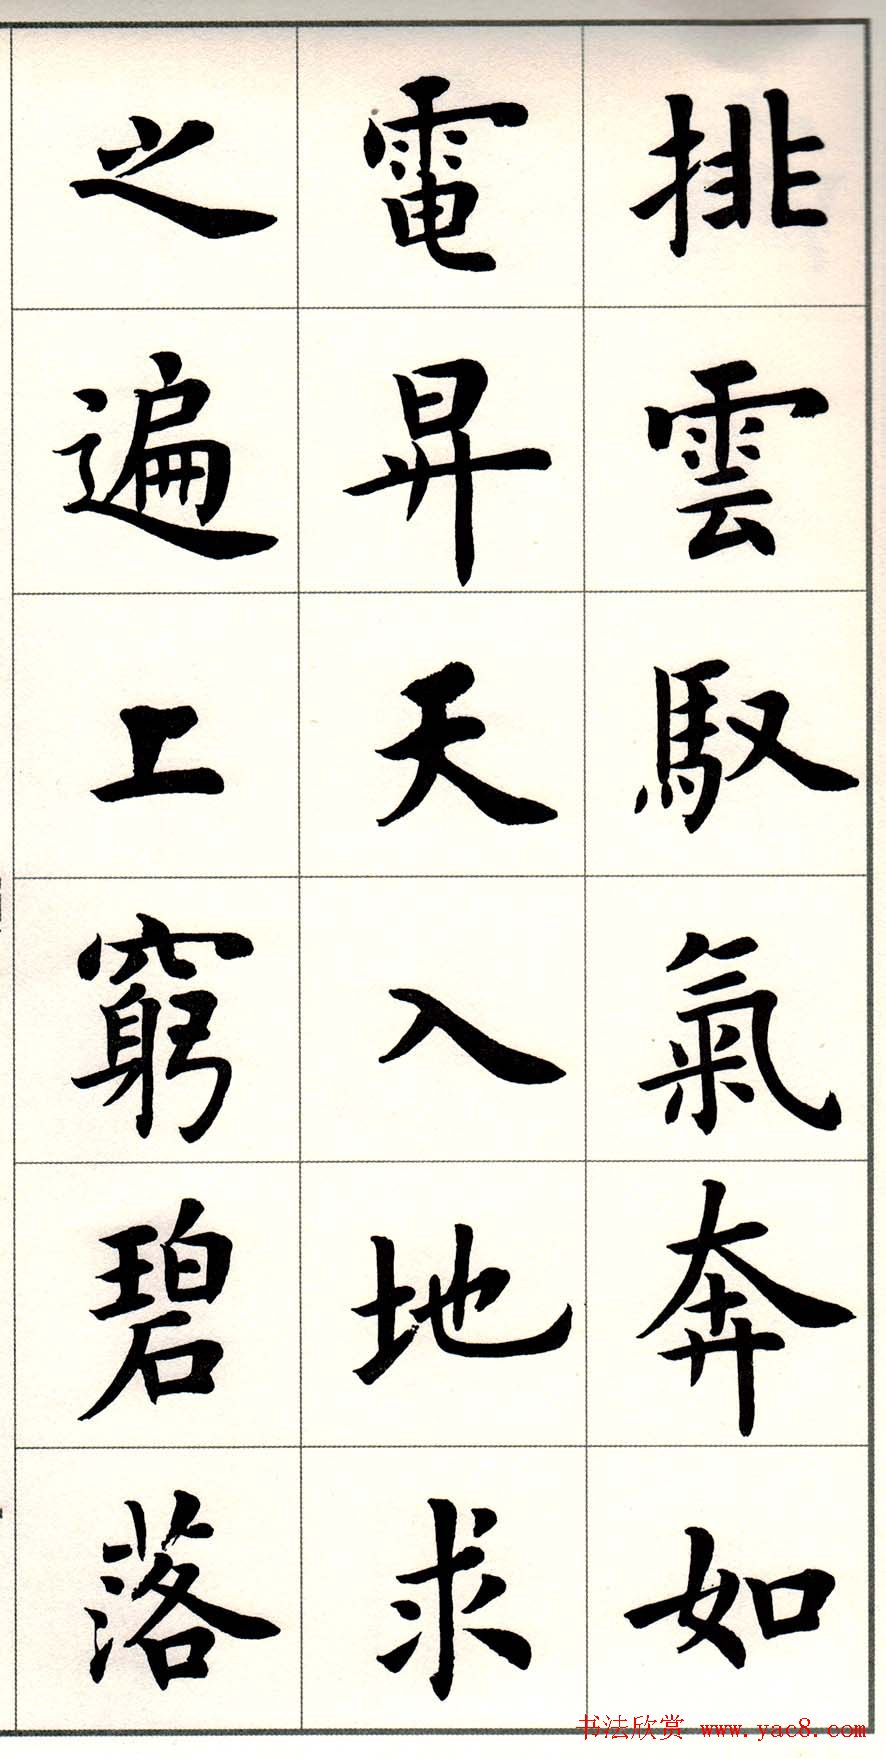 排雲馭氣奔如
電昇天入地求
之遍上窮碧落
书法欣赏 www.yac8.com